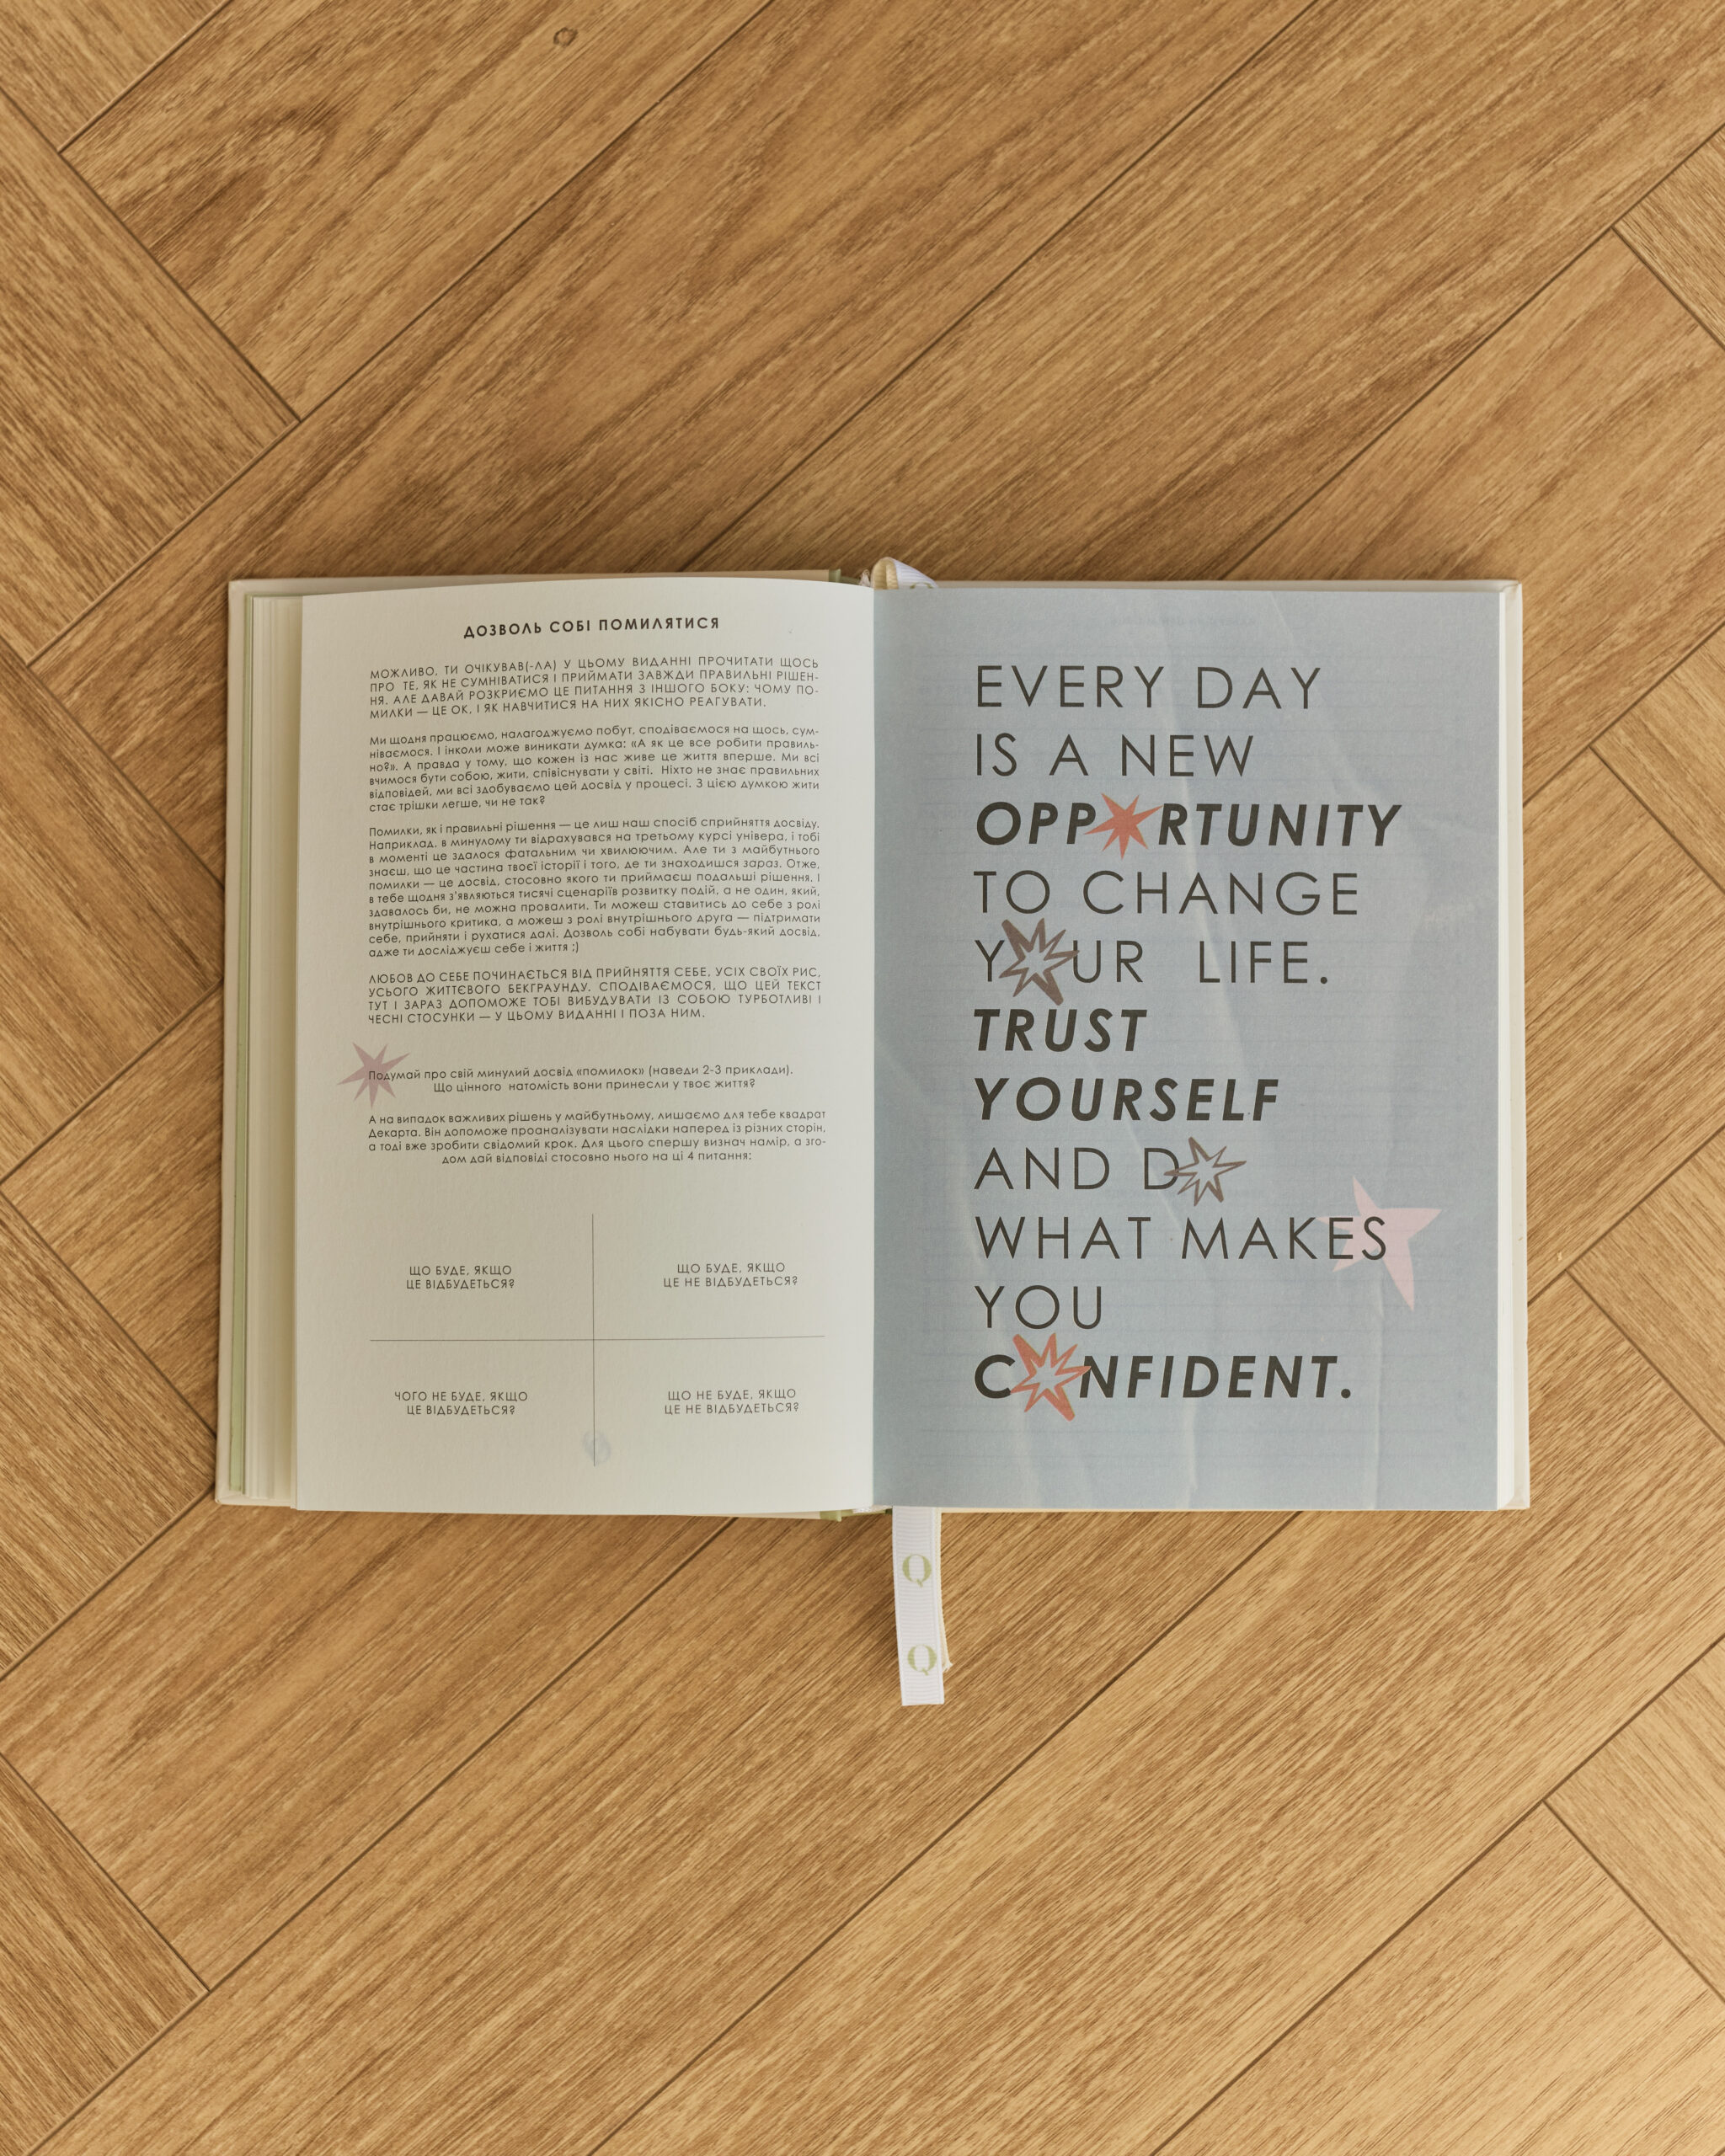 ДОЗВОЛЬ СОБІ ПОМИЛЯТИСЯ
МОЖЛИВО, ТИ ОЧІКУВАВ(-ЛА) У ЦЬОМУ ВИДАННІ ПРОЧИТАТИ ЩОСЬ
ПРО ТЕ, ЯК НЕ СУМНІВАТИСЯ І ПРИЙМАТИ ЗАВЖДИ ПРАВИЛЬНІ РІШЕН-
НЯ. АЛЕ ДАВАЙ РОЗКРИЄМО ЦЕ ПИТАННЯ З ІНШОГО БОКУ: ЧОМУ ПО-
МИЛКИ — ЦЕ ОК, І ЯК НАВЧИТИСЯ НА НИХ ЯКІСНО РЕАГУВАТИ.
Ми щодня працюємо, налагоджуємо побут, сподіваємося на щось, сум-
ніваємося. І інколи може виникати думка: «А як це все робити правиль-
но?». А правда у тому, що кожен із нас живе це життя вперше. Ми всі
вчимося бути собою, жити, співіснувати у світі. Ніхто не знає правильних
відповідей, ми всі здобуваємо цей досвід у процесі. З цією думкою жити
стає трішки легше, чи не так?
Помилки, як і правильні рішення — це лиш наш спосіб сприйняття досвіду.
Наприклад, в минулому ти відрахувався на третьому курсі універа, і тобі
в моменті це здалося фатальним чи хвилюючим. Але ти з майбутнього
знаєш, що це частина твоєї історії і того, де ти знаходишся зараз. Отже,
помилки — це досвід, стосовно якого ти приймаєш подальші рішення. І
в тебе щодня з'являються тисячі сценаріїв розвитку подій, а не один, який,
здавалось би, не можна провалити. Ти можеш ставитись до себе з ролі
внутрішнього критика, а можеш з ролі внутрішнього друга — підтримати
себе, прийняти і рухатися далі. Дозволь собі набувати будь-який досвід,
адже ти досліджуєш себе і життя ;)
ЛЮБОВ ДО СЕБЕ ПОЧИНАЄТЬСЯ ВІД ПРИЙНЯТТЯ СЕБЕ, УСІХ СВОЇХ РИС,
УСЬОГО ЖИТТЄВОГО БЕКГРАУНДУ. СПОДІВАЄМОСЯ, ЩО ЦЕЙ ТЕКСТ
ТУТ І ЗАРАЗ ДОПОМОЖЕ ТОБІ ВИБУДУВАТИ ІЗ СОБОЮ ТУРБОТЛИВІ І
ЧЕСНІ СТОСУНКИ — У ЦЬОМУ ВИДАННІ І ПОЗА НИМ.
Подумай про свій минулий досвід «помилок» (наведи 2-3 приклади).
Що цінного натомість вони принесли у твоє життя?
А на випадок важливих рішень у майбутньому, лишаємо для тебе квадрат
Декарта. Він допоможе проаналізувати наслідки наперед із різних сторін,
а тоді вже зробити свідомий крок. Для цього спершу визнач намір, а зго-
дом дай відповіді стосовно нього на ці 4 питання:
ЩО БУДЕ, ЯКЩО
ЦЕ ВІДБУДЕТЬСЯ?
ЩО БУДЕ, ЯКЩО
ЦЕ НЕ ВІДБУДЕТЬСЯ?
ЧОГО НЕ БУДЕ, ЯКЩО
ЦЕ ВІДБУДЕТЬСЯ?
ЩО НЕ БУДЕ, ЯКЩО
ЦЕ НЕ ВІДБУДЕТЬСЯ?
EVERY DAY
IS A NEW
OPPORTUNITY
TO CHANGE
YOUR LIFE.
TRUST
YOURSELF
AND DO
WHAT MAKES
YOU
CONFIDENT.
Q
Q